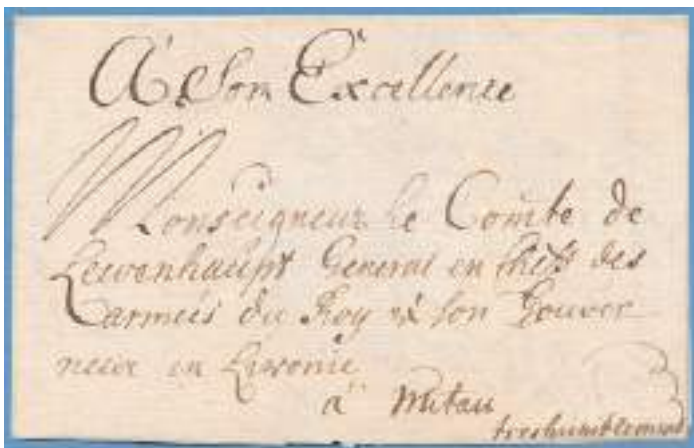 A Son Excellence
Monseigneur le Comte de
Lewenhaupt General en cheff des
armées du Roy & son Gouver
neur en Livonie
à Mitau